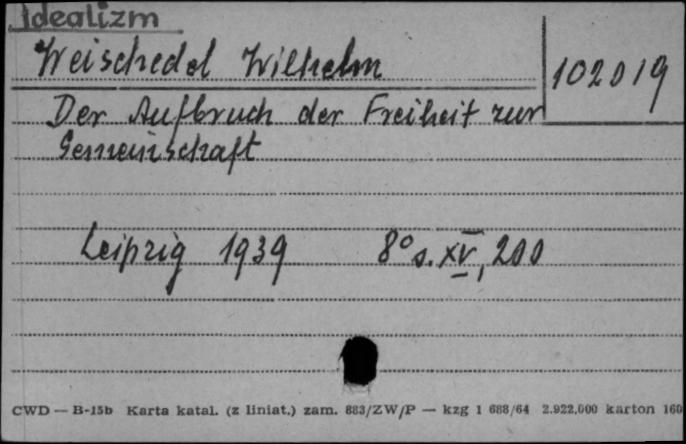 Idealizm
Weischedel Wilhelm
102019
Der Aufbruch der Freiheit zur
Gemeinschaft
Leipzig 1939 8° s. XV, 200
CWD — B-15b Karta katal. (z liniat.) zam. 883/ZW/P — kzg 1 688/64 2.922.000 karton 160